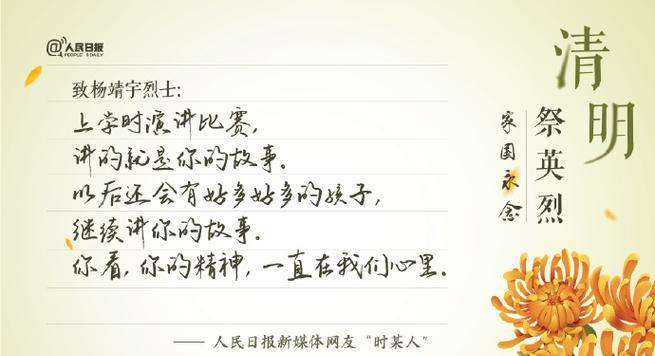 @人民日报
PEOPLE'S DAILY
致杨靖宇烈士:
上学时演讲比赛,
讲的就是你的故事。
以后还会有好多好多的孩子,
继续讲你的故事。
你看,你的精神,一直在我们心里。
—— 人民日报新媒体网友“时某人”
清明
祭英烈
家国永念